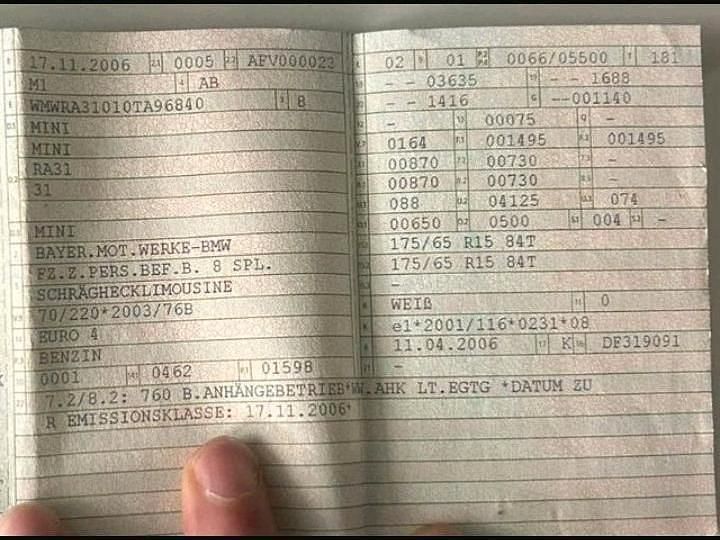 17.11.2006 0005 AFV000023
M1 AB
WMWRA31010TA96840 8
MINI
MINI
RA31
31
MINI
BAYER.MOT.WERKE-BMW
FZ.Z.PERS.BEF.B. 8 SPL.
SCHRÄGHECKLIMOUSINE
70/220*2003/76B
EURO 4
BENZIN
0001 0462 01598
02 01 0066/05500 181
- - 03635 - - 1688
- - 1416 --001140
- 00075 -
0164 001495 001495
00870 00730 -
00870 00730 -
088 04125 074
00650 0500 004 -
175/65 R15 84T
175/65 R15 84T
-
WEIß 0
e1*2001/116*0231*08
11.04.2006 K DF319091
-
7.2/8.2: 760 B.ANHÄNGEBETRIEB*W.AHK LT.EGTG *DATUM ZU
R EMISSIONSKLASSE: 17.11.2006*